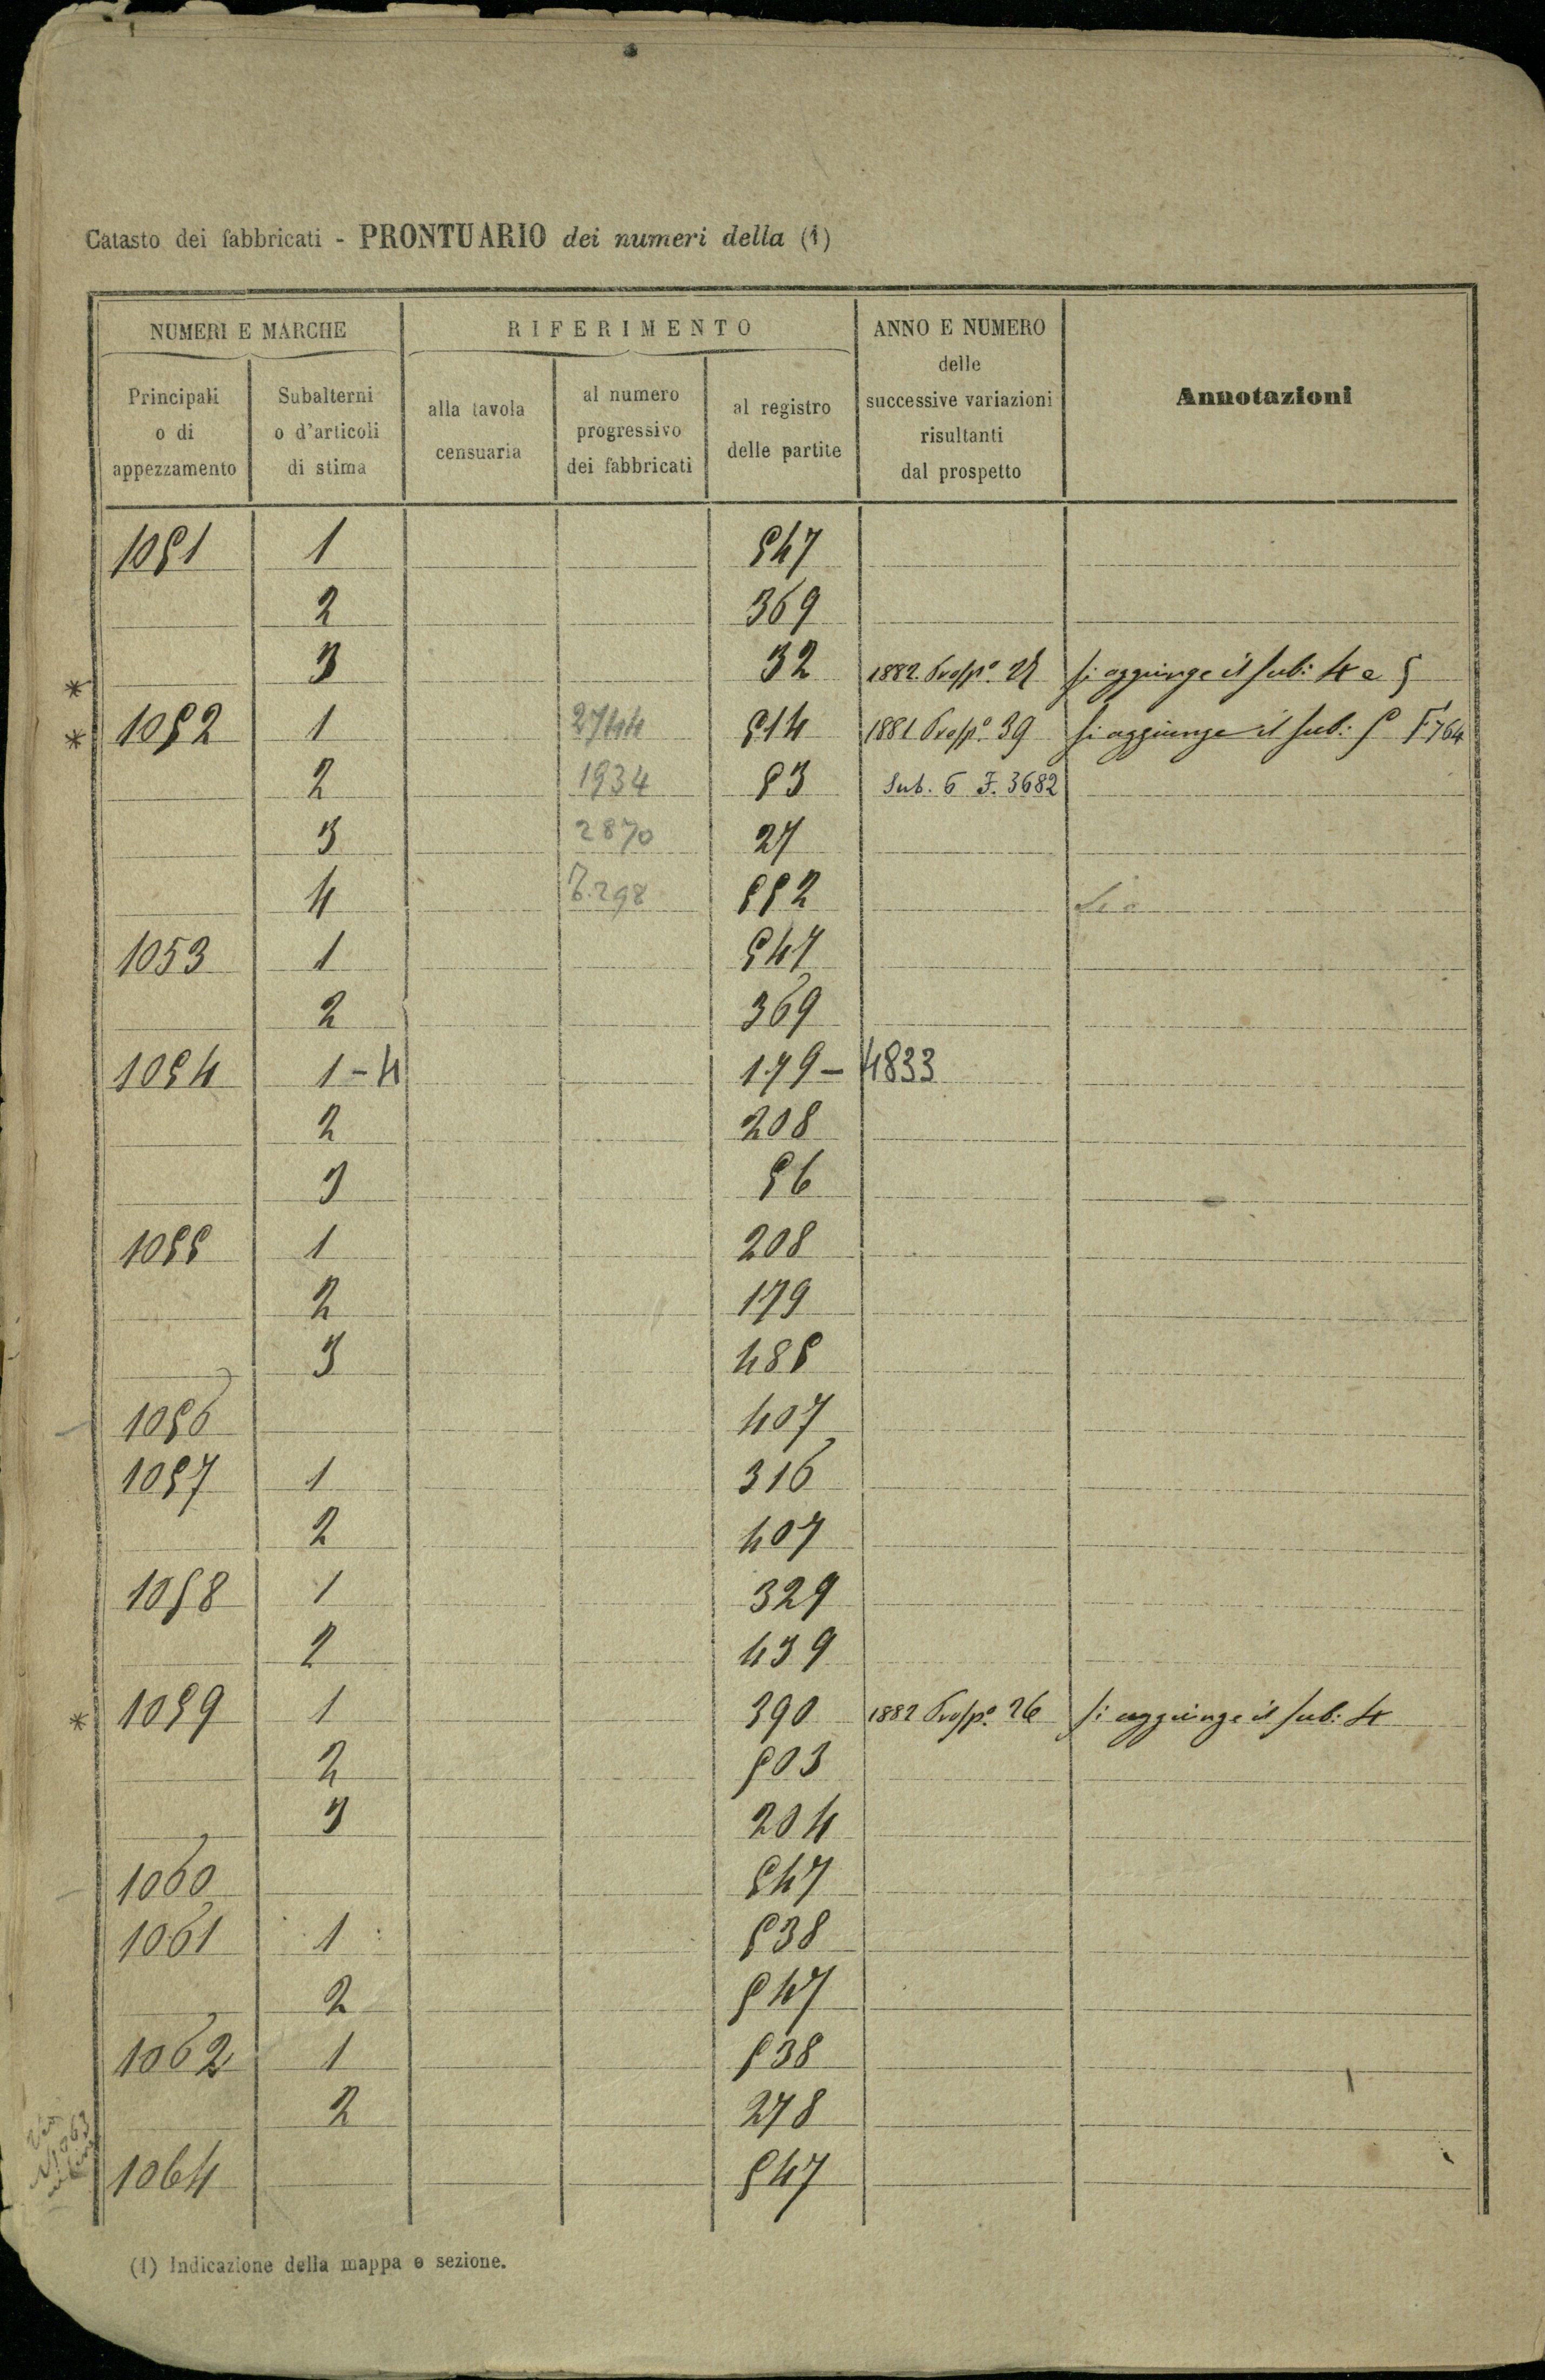 Catasto dei fabbricati - PRONTUARIO dei numeri della (1)
NUMERI E MARCHE
RIFERIMENTO
ANNO E NUMERO
delle
successive variazioni
risultanti
dal prospetto
Annotazioni
Principali
o di
appezzamento
Subalterni
o d'articoli
di stima
alla tavola
censuaria
al numero
progressivo
dei fabbricati
al registro
delle partite
1051 1 547
2 369
3 32 1882. Prosp.o si aggiunge il sub: 4 e 5
* 
* 1052 1 2744 514 1881 Prosp.o 39 si aggiunge il sub: 5 F 764
2 1934 53 Sub. 6 F. 3682
3 2870 27
4 298 552
1053 1 547
2 369
1054 1 - 4 179 - 4833
2 208
3 56
1055 1 208
2 179
3 485
1056 407
1057 1 316
2 407
1058 1 329
2 439
* 1059 1 390 1882 Prosp.o 26 si aggiunge il sub: 4
2 503
3 204
1060 547
1061 1 538
2 547
1062 1 538
2 278
1064 547
(1) Indicazione della mappa o sezione.